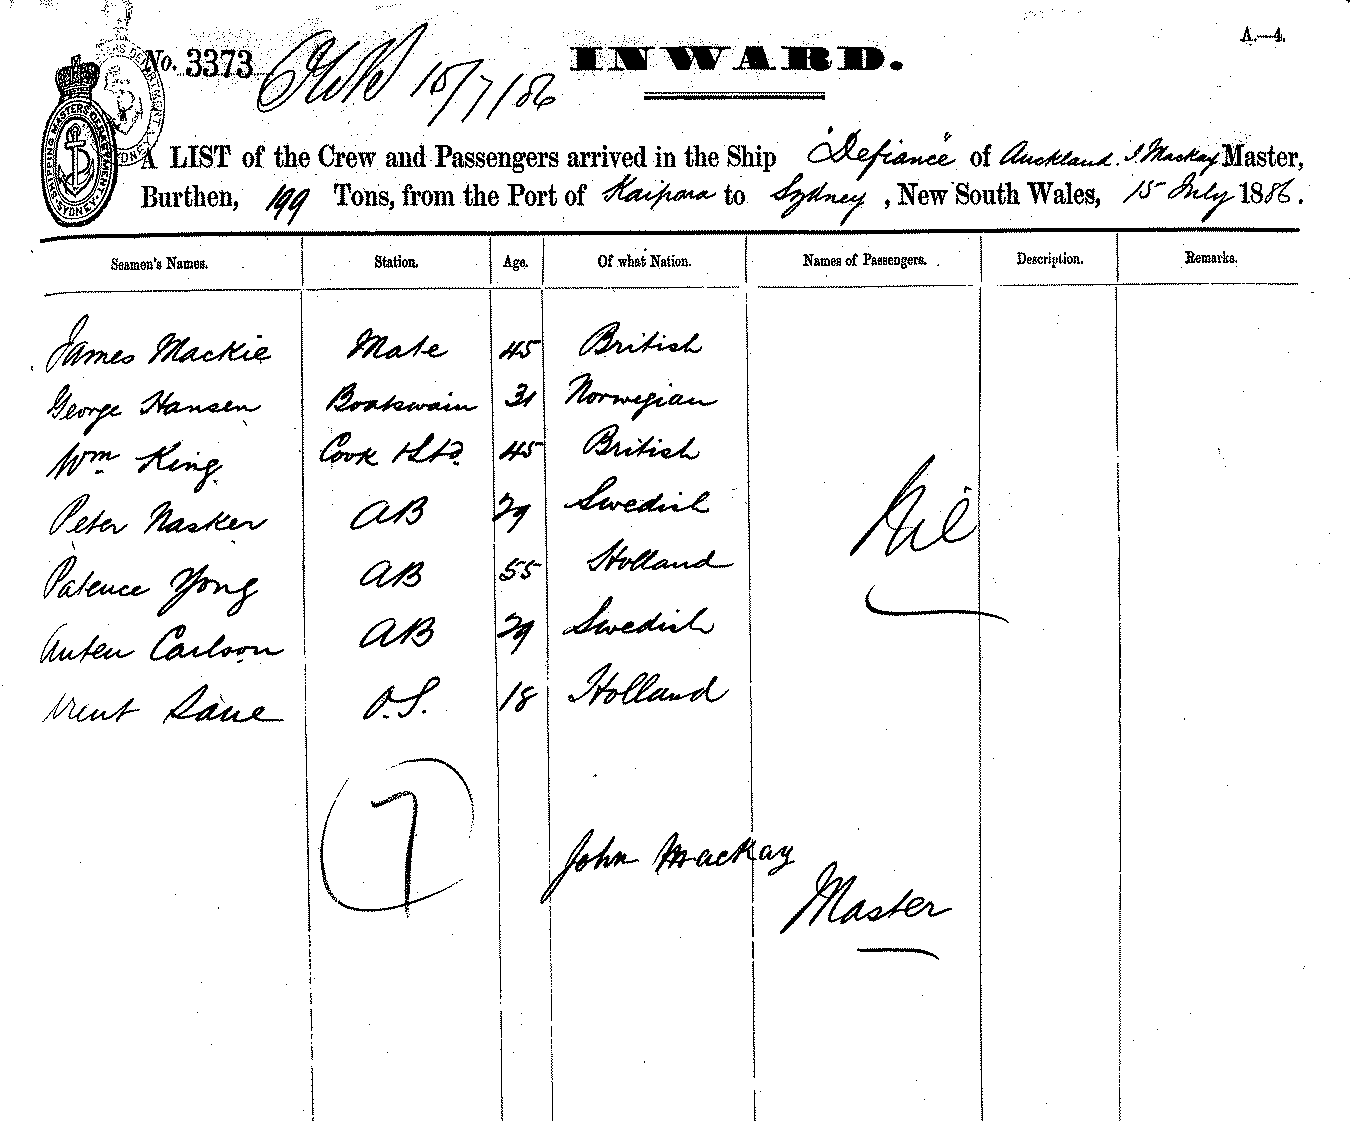 A.—4.
No. 3373 15/7/86 INWARD.
A LIST of the Crew and Passengers arrived in the Ship "Defiance" of Auckland. J Mackay Master,
Burthen, 199 Tons, from the Port of Kaipara to Sydney, New South Wales, 15 July 1886.
Seamen's Names. Station. Age. Of what Nation. Names of Passengers. Description. Remarks.
James Mackie Mate 45 British
George Hansen Boatswain 31 Norwegian
Wm King Cook & Std. 45 British
Peter Nasker AB 29 Swedish
Patence Yong AB 55 Holland
Anten Carlson AB 29 Swedish
18 Holland
O.S.
Nil
7
John Mackay
Master
SHIPPING MASTERS DEPARTMENT SYDNEY